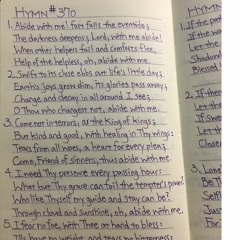 HYMN #370
1. Abide with me! fast falls the eventide;
The darkness deepens; Lord, with me abide!
When other helpers fail and comforts flee,
Help of the helpless, oh, abide with me.
2. Swift to its close ebbs out life's little day;
Earth's joys grow dim, its glories pass away;
Change and decay in all around I see;
O Thou who changest not, abide with me.
3. Come not in terrors, as the King of kings;
But kind and good, with healing in Thy wings:
Tears for all woes, a heart for every plea;
Come, Friend of sinners, thus abide with me.
4. I need Thy presence every passing hour:
What but Thy grace can foil the tempter's power?
Who like Thyself my guide and stay can be?
Through cloud and sunshine, oh, abide with me.
5. I fear no foe, with Thee at hand to bless:
Ills have no weight, and tears no bitterness:
HYMN
1. If the
Let the
Shadow
Blessed
2. If then
Let the
If sow
Let the
3.
Be Th
Self
Just
For